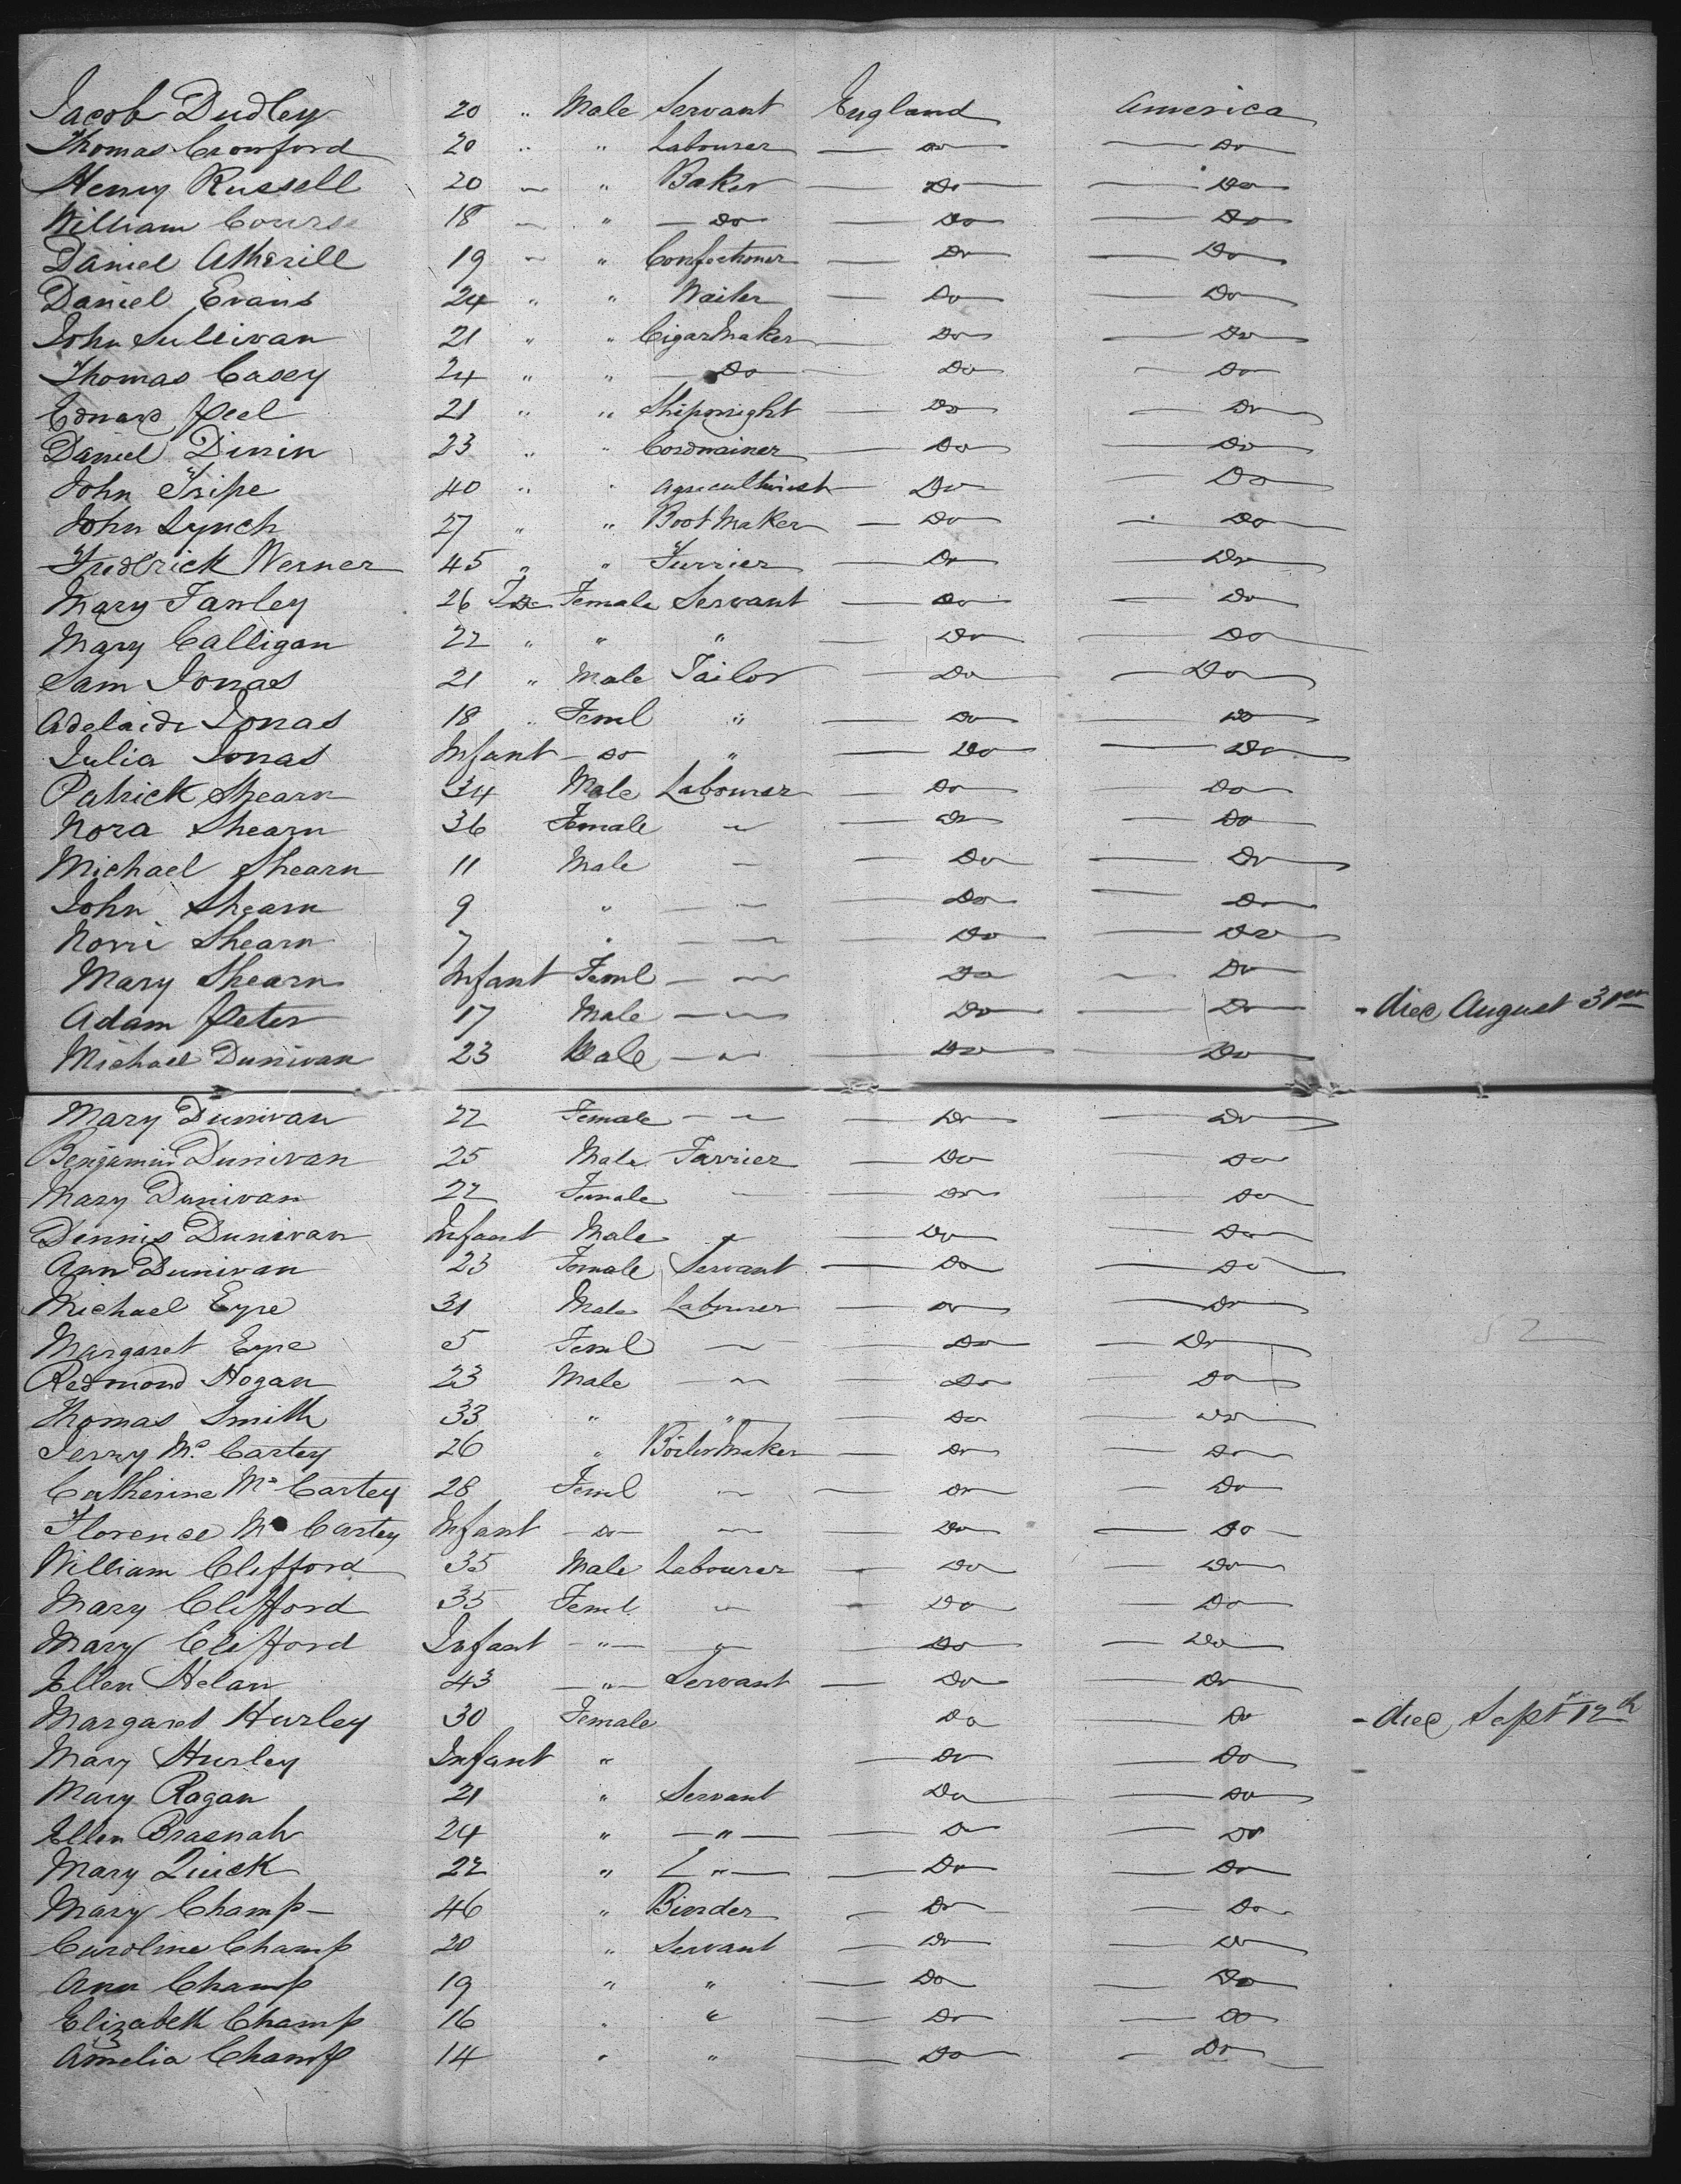 Jacob Dudley 20 " Male Servant England America
Thomas Crowford 20 " " Labourer — Do — Do
Henry Russell 20 — " Baker — Do — Do
William Course 18 — " — Do — Do — Do
Daniel Atherill 19 — " Confectioner — Do — Do
Daniel Evans 24 " " Waiter — Do — Do
John Sullivan 21 " " Cigar Maker — Do — Do
Thomas Casey 24 " " — Do — Do — Do
Edward Peel 21 " " Shipwright — Do — Do
Daniel Dinin 23 " " Cordwainer — Do — Do
John Tripe 40 " " Agriculturist — Do — Do
John Lynch 27 " " Boot Maker — Do — Do
Fredrick Werner 45 " " Furrier — Do — Do
Mary Fanley 26 Female Servant — Do — Do
Mary Calligan 22 " " " — Do — Do
Sam Jonas 21 " Male Tailor — Do — Do
Adelaide Jonas 18 " Feml " — Do — Do
Julia Jonas Infant — Do " — Do — Do
Patrick Shearn 34 Male Labourer — Do — Do
Nora Shearn 36 Female — — Do — Do
Michael Shearn 11 Male — — Do — Do
John Shearn 9 " — — Do — Do
Norri Shearn 7 " — — Do — Do
Mary Shearn Infant Feml — — Do — Do
Adam Peter 17 Male — — Do — Do - died August 31st
Michael Dunivan 23 Male — — Do — Do
Mary Dunivan 22 Female — — Do — Do
Benjamin Dunivan 25 Male Farrier — Do Do
Mary Dunivan 22 Female — — Do — Do
Dennis Dunivan Infant Male " — Do — Do
Ann Dunivan 23 Female Servant — Do — Do
Michael Eyre 31 Male Labourer — Do — Do
Margaret Eyre 5 Feml — — Do — Do
52
Redmond Hogan 23 Male — — Do — Do
Thomas Smith 33 " " — Do — Do
Jerry Mc Cartey 26 " Boiler Maker — Do — Do
Catherine Mc Cartey 28 Feml — — Do — Do
Florence Mc Cartey Infant — Do — — Do — Do
William Clifford 35 Male Labourer — Do — Do
Mary Clifford 35 Feml — — Do — Do
Mary Clifford Infant — " — " — Do — Do
Ellen Helan 43 — " — Servant — Do — Do
Margaret Hurley 30 Female Do — Do - died Sept 12th
Mary Hurley Infant " — Do — Do
Mary Ragan 21 " Servant Do — Do
Ellen Brasnah 24 " — " — — Do — Do
Mary Quick 22 " — " — — Do — Do
Mary Champ 46 " Binder — Do — Do
Caroline Champ 20 " Servant — Do — Do
Ann Champ 19 " " — Do — Do
Elizabeth Champ 16 " " — Do — Do
Amelia Champ 14 " " — Do — Do